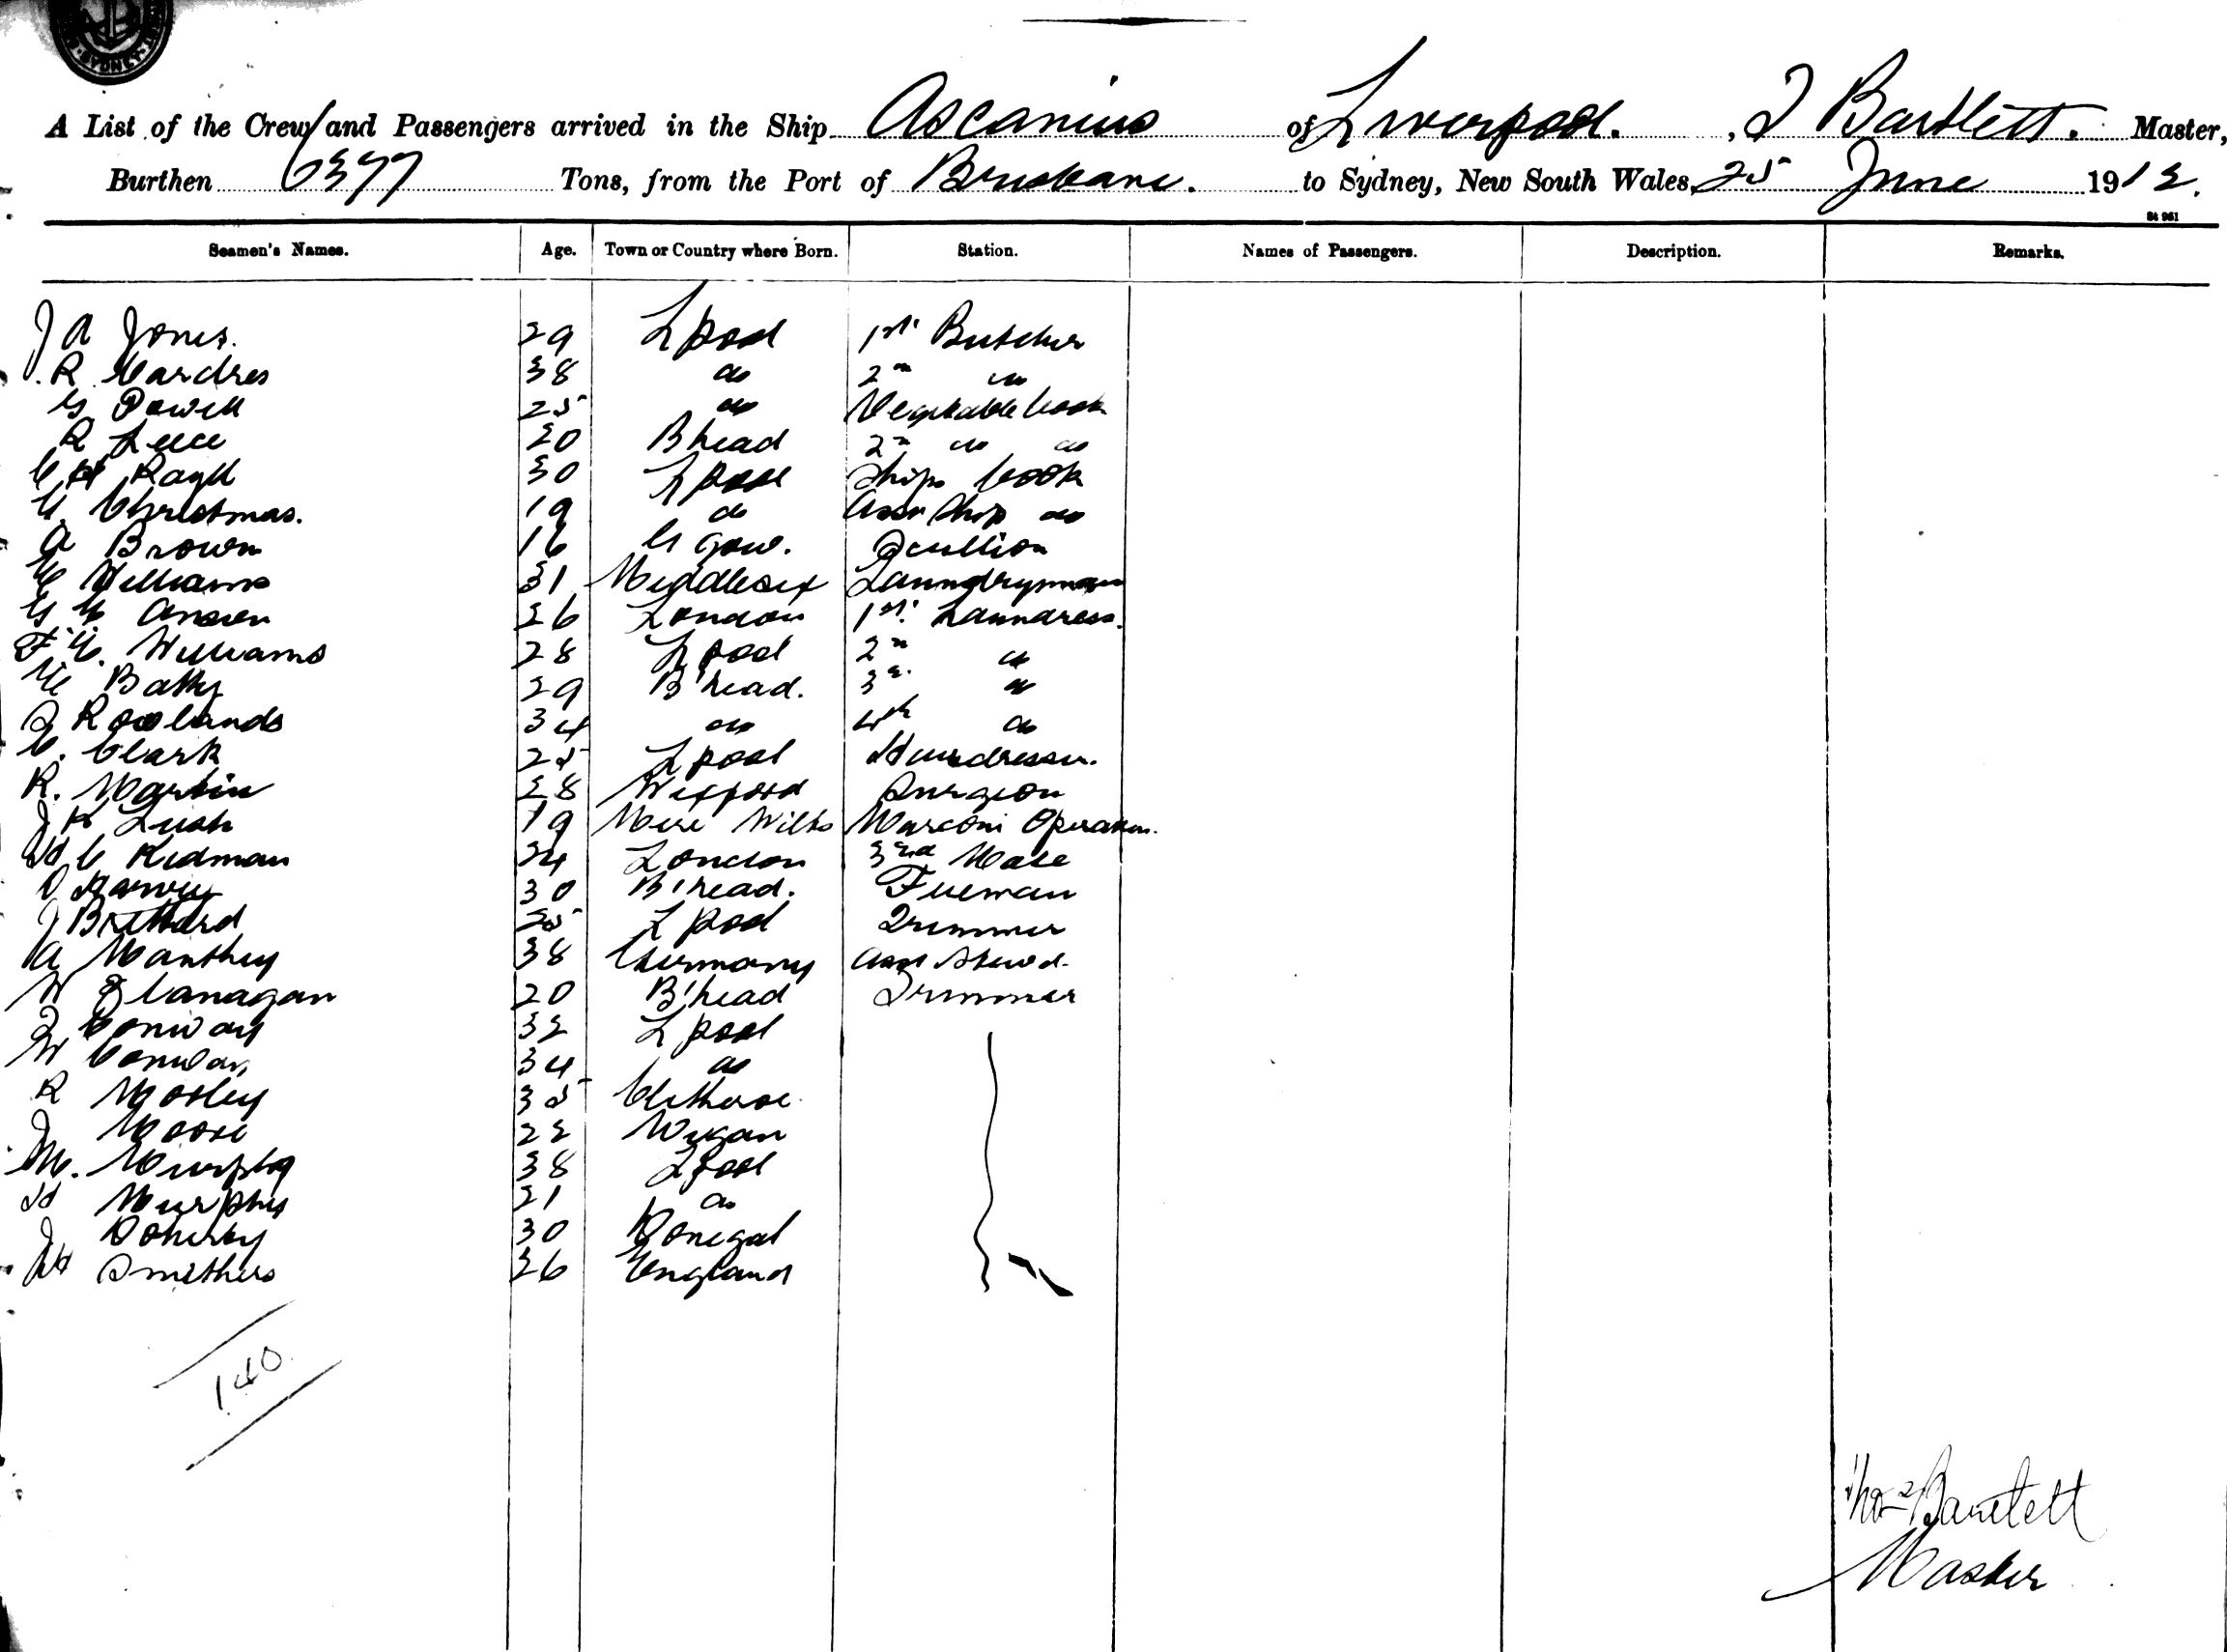 SYDNEY
A List of the Crew and Passengers arrived in the Ship Ascanius of Liverpool. , T Bartlett. Master,
Burthen 6377 Tons, from the Port of Brisbane. to Sydney, New South Wales, 25 June 1912.
St 961
Seamen's Names. Age. Town or Country where Born. Station. Names of Passengers. Description. Remarks.
J A Jones. 29 Lpool 1st Butcher
R Cardres 38 do 2n do
G Powell 25 do Vegetable Cook
R Leece 20 Bhead 2n do do
C H 30 Lpool Ships Cook
Christmas. 19 do Asst Ship do
A Brown 16 G gow. Scullion
Williams 31 Middlesex Laundryman
26 London 1st Laundress.
F E. Williams 28 Lpool 2n do
Batty 29 B'head. 3rd do
Rowlands 34 do 4th do
C. Clark 25 Lpool Hairdresser.
R. Martin 28 Wexford Surgeon
J R Lush 19 Mere Wilts Marconi Operator.
H C Kidman 24 London 3rd Mate
30 B'head. Fireman
J 25 Lpool Trimmer
A Manthey 38 Germany Asst Stewd.
W Flanagan 20 B'head Trimmer
T Conway 32 Lpool
W Conway 34 do
R Mosley 35 Clitheroe
J Moore 22 Wigan
M. Murphy 38 Lpool
H Murphy 21 do
J Doherty 30 Donegal
Smithers 26 England
140
Thos Bartlett
Master